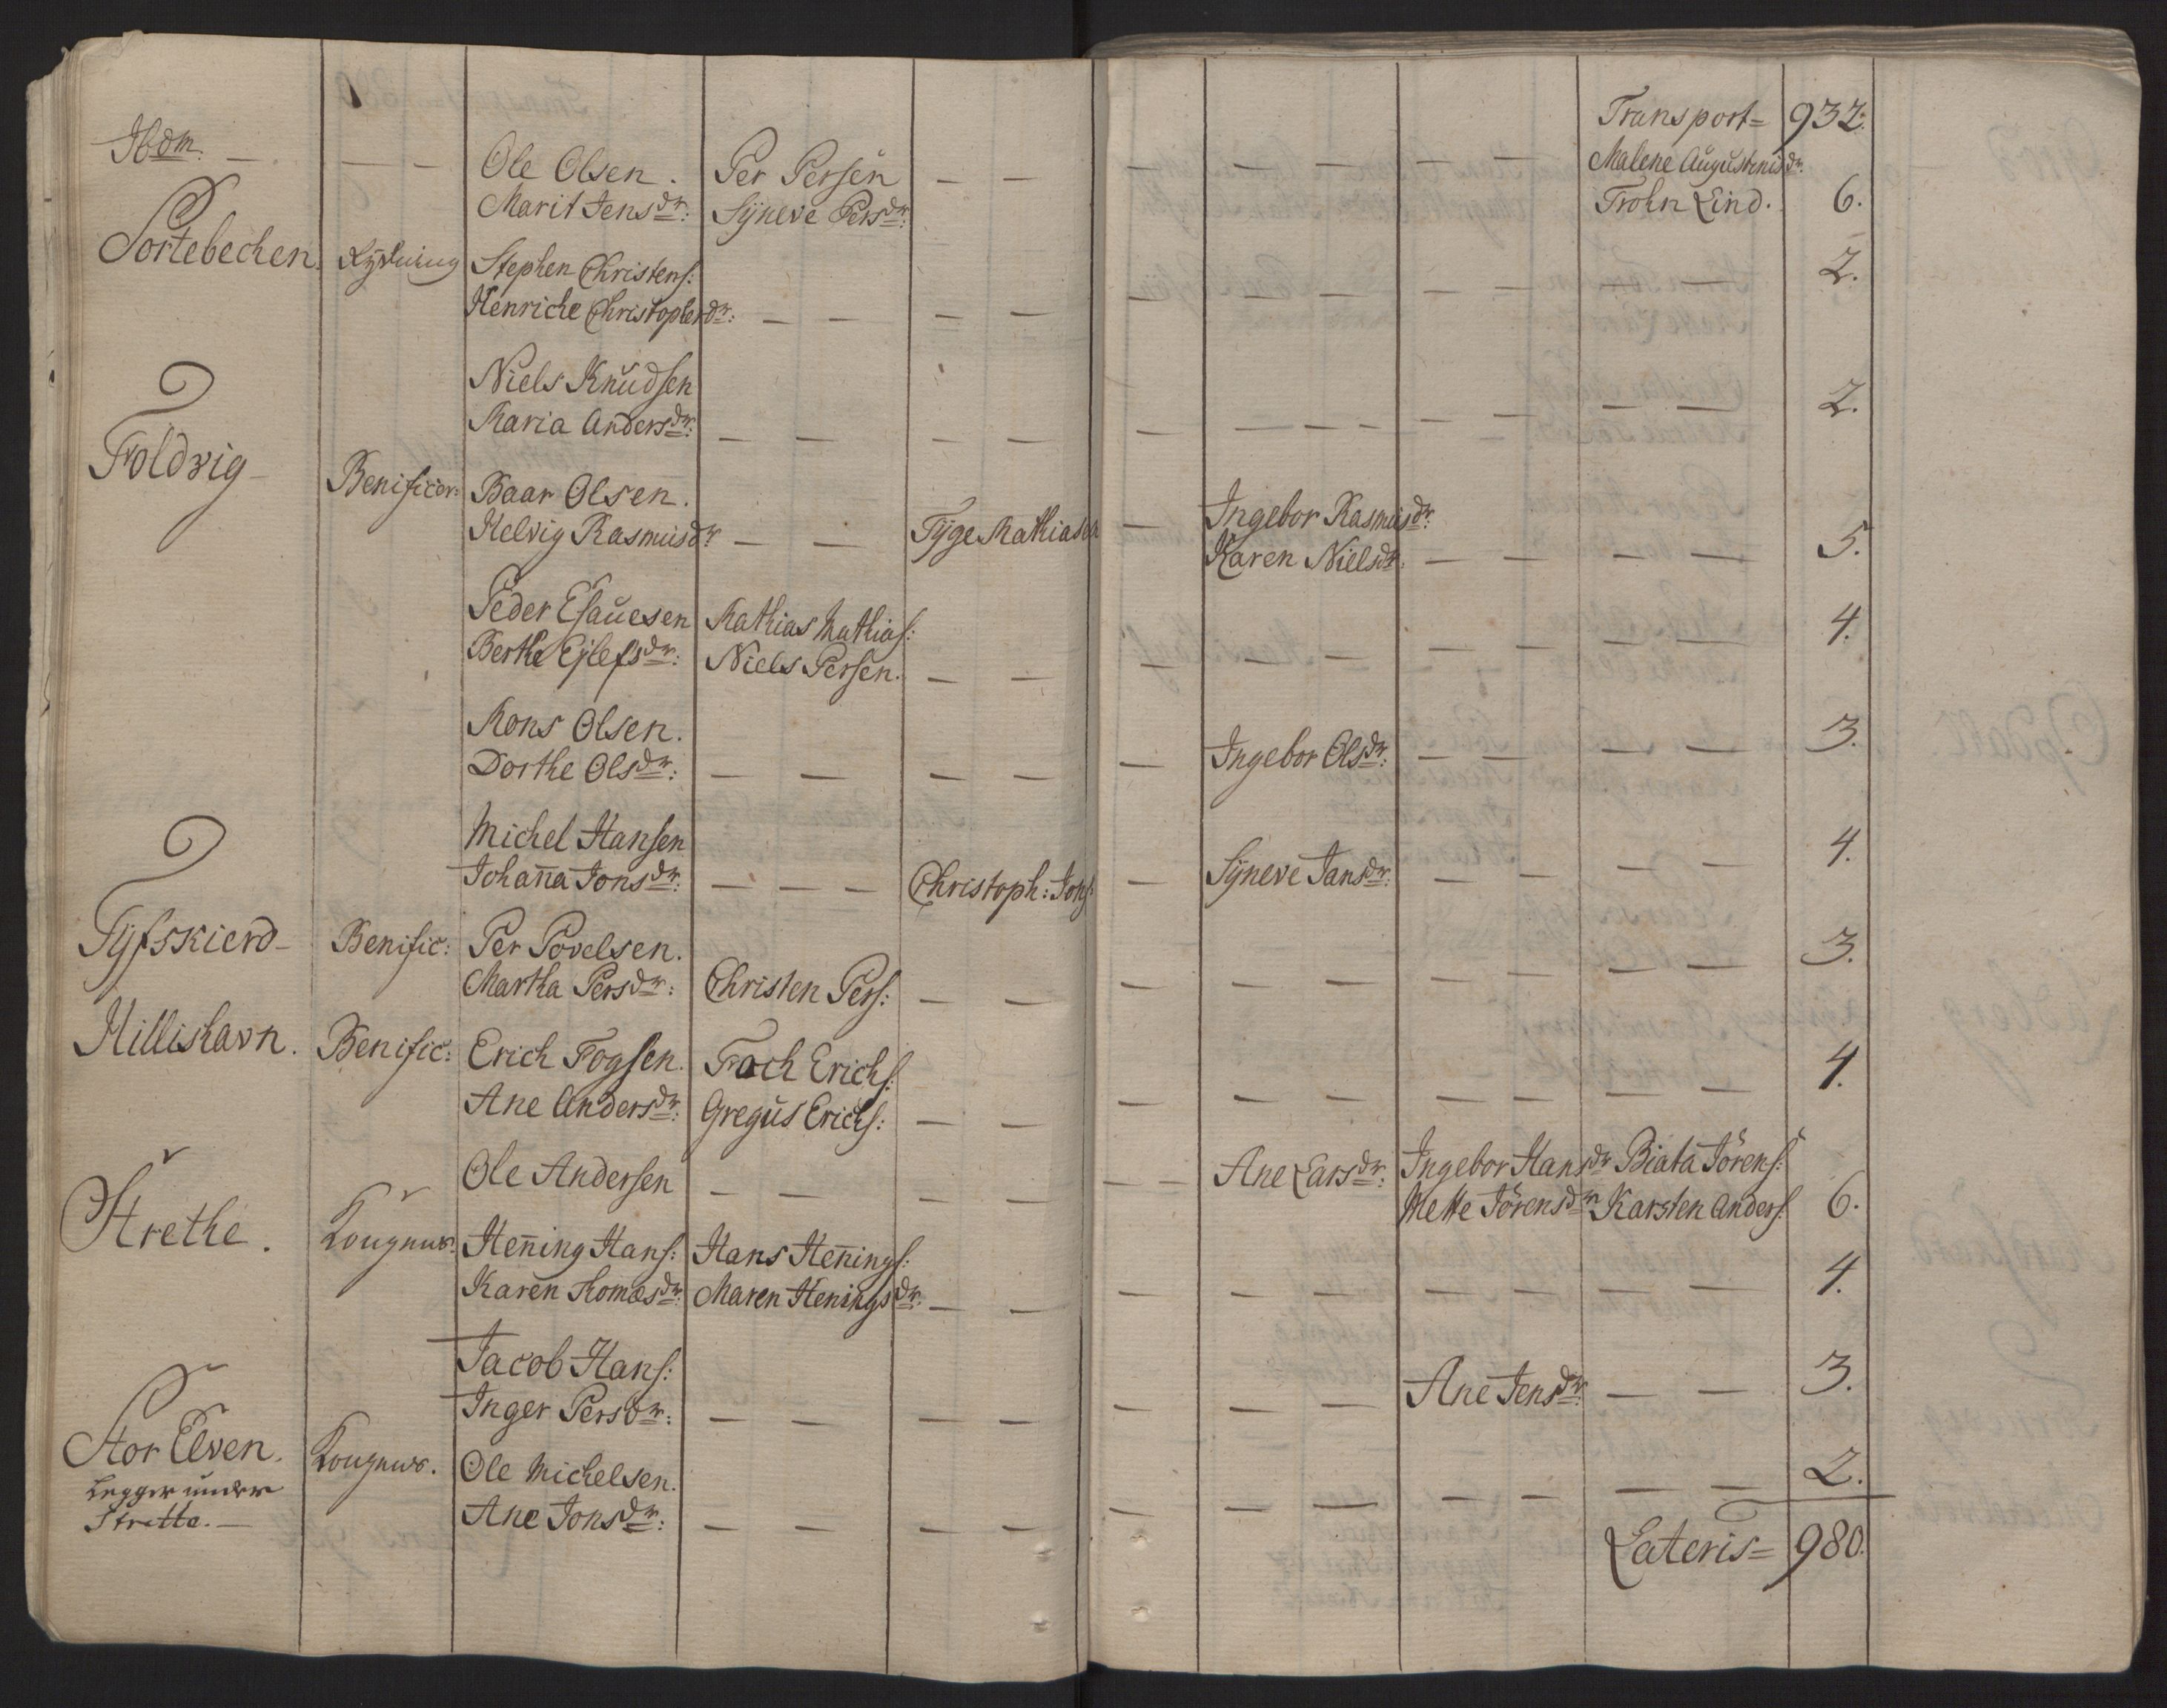 Transport = 932.
Ibdm. — — — Ole Olsen. Per Persen — — — — — — — Malene Augustinisdr.
Marit Jensdr: Syneve Persdr: Trohn Lind. 6.
Sortebechen. Stephen Christens: 2.
Henriche Christophersdr: — — — — — — — — — — —
Niels Knudsen 2.
Maria Andersdr: — — — — — — — — — — — — —
Foldvig — Benificer: Baar Olsen. Ingebor Rasmusdr:
Helvig Rasmusdr — — Tyge Mathiasen — Karen Nielsdr. — — — — 5.
Peder Esauesen Mathias Mathias: 4.
Berthe Ejlefsdr: Niels Persen. — — — — — — — — — —
Mons Olsen. 3.
Dorthe Olsdr: — — — — — Ingebor Olsdr: — — — —
Michel Hansen 4.
Johana Jonsdr: — — — Christoph: Jons: — Syneve Jansdr: — — — —
Tyfskierd — Benific: Per Povelsen. 3.
Martha Persdr: Christen Pers: — — — — — — — — —
Hillishavn. Benific: Erich Fogsen. Troch Erichs: 4.
Ane Andersdr: Gregus Erichs: — — — — — — — — —
Ole Andersen — — — — — — Ane Larsdr: Ingebor Hansdr Biata Jörens:
Mette Jörensdr Karsten Anders: 6.
Strethe. Hening Hans: Hans Henings: 4.
Karen Thomasdr: Maren Heningsdr: — — — — — — — — —
Jacob Hans: 3.
Inger Persdr: — — — — — — — Ane Jensdr: — —
Stor Elven. Ole Michelsen. 2.
Legger under
Strette. — Ane Jonsdr: — — — — — — — — — — —
Lateris = 980.